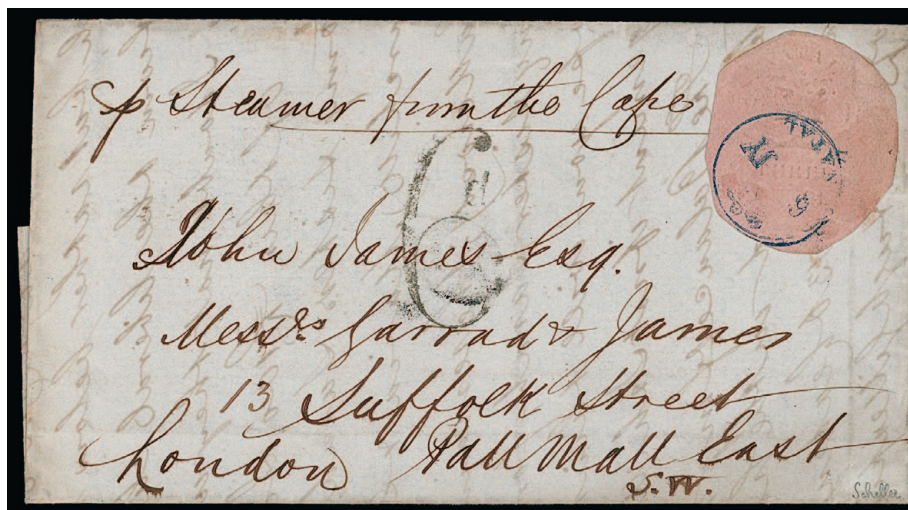 p Steamer from the Cape
NATAL
6
6d
John James Esq.
Messrs Garrad & James
13 Suffolk Street
London Pall Mall East
S.W.
Schiller